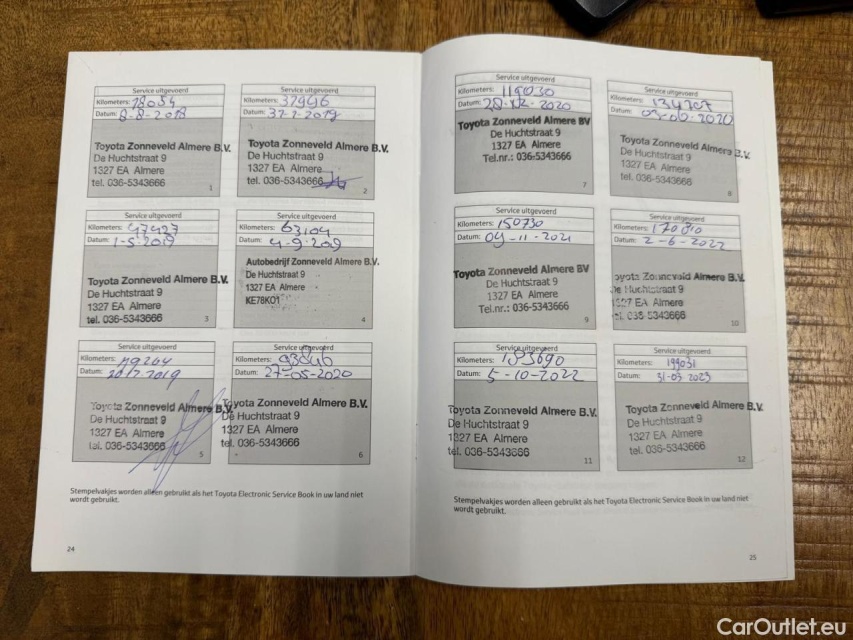 Service uitgevoerd
Kilometers: 18054
Datum: 8-8-2018
Toyota Zonneveld Almere B.V.
De Huchtstraat 9
1327 EA Almere
tel. 036-5343666
1
Service uitgevoerd
Kilometers: 37946
Datum:
Toyota Zonneveld Almere B.V.
De Huchtstraat 9
1327 EA Almere
tel. 036-5343666
2
Service uitgevoerd
Kilometers: 47427
Datum: 1-5-2019
Toyota Zonneveld Almere B.V.
De Huchtstraat 9
1327 EA Almere
tel. 036-5343666
3
Service uitgevoerd
Kilometers: 63104
Datum: 4-9-209
Autobedrijf Zonneveld Almere B.V.
De Huchtstraat 9
1327 EA Almere
KE78K01
4
Service uitgevoerd
Kilometers:
Datum:
Toyota Zonneveld Almere B.V.
De Huchtstraat 9
1327 EA Almere
tel. 036-5343666
5
Service uitgevoerd
Kilometers: 93046
Datum: 27-05-2020
Toyota Zonneveld Almere B.V.
De Huchtstraat 9
1327 EA Almere
tel. 036-5343666
6
Stempelvakjes worden alleen gebruikt als het Toyota Electronic Service Book in uw land niet
wordt gebruikt.
24
Service uitgevoerd
Kilometers: 119030
Datum: 28-12-2020
Toyota Zonneveld Almere BV
De Huchtstraat 9
1327 EA Almere
Tel.nr.: 036-5343666
7
Service uitgevoerd
Kilometers:
Datum:
Toyota Zonneveld Almere B.V.
De Huchtstraat 9
1327 EA Almere
tel. 036-5343666
8
Service uitgevoerd
Kilometers: 150730
Datum: 04-11-2021
Toyota Zonneveld Almere BV
De Huchtstraat 9
1327 EA Almere
Tel.nr.: 036-5343666
9
Service uitgevoerd
Kilometers: 170810
Datum: 2-6-2022
oyota Zonneveld Almere B.V.
De Huchtstraat 9
1327 EA Almere
tel. 036-5343666
10
Service uitgevoerd
Kilometers: 183690
Datum: 5-10-2022
Toyota Zonneveld Almere B.V.
De Huchtstraat 9
1327 EA Almere
tel. 036-5343666
11
Service uitgevoerd
Kilometers: 199031
Datum: 31-03 2023
Toyota Zonneveld Almere B.V.
De Huchtstraat 9
1327 EA Almere
tel. 036-5343666
12
Stempelvakjes worden alleen gebruikt als het Toyota Electronic Service Book in uw land niet
wordt gebruikt.
25
CarOutlet.eu